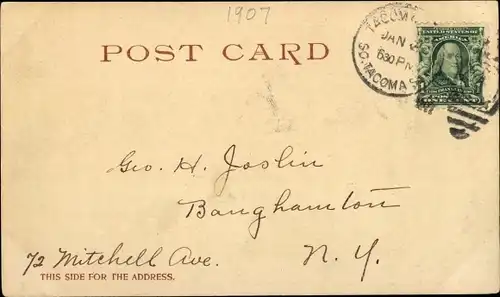 1907
TACOMA
JAN
630 PM
SO. TACOMA S
POST CARD
UNITED STATES OF AMERICA
ONE CENT
Geo. H. Joslin
Banghamton
72 Mitchell Ave. N. Y.
THIS SIDE FOR THE ADDRESS.